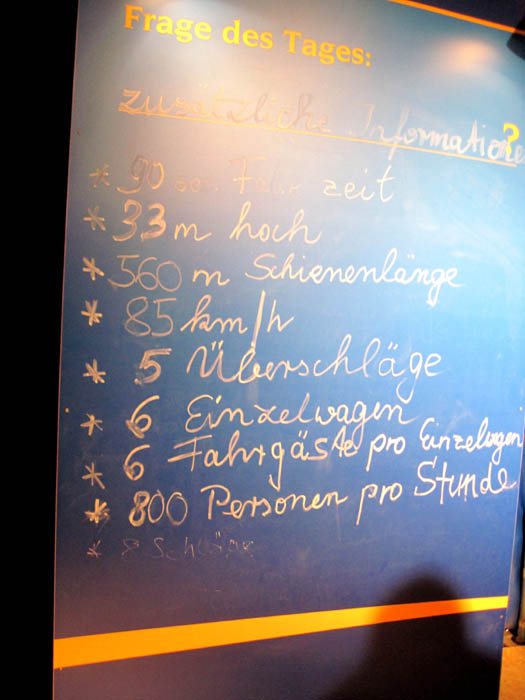 Frage des Tages:
?
zusätzliche Informationen
* 90 sec Fahrzeit
* 33 m hoch
* 560 m Schienenlänge
* 85 km/h
* 5 Überschläge
* 6 Einzelwagen
* 6 Fahrgäste pro Einzelwagen
* 800 Personen pro Stunde
* 8